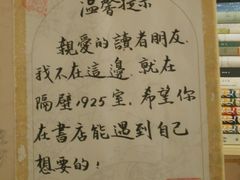 溫馨提示
親愛的讀者朋友.
我不在這邊.就在
隔壁1925室.希望你
在書店能遇到自己
想要的!